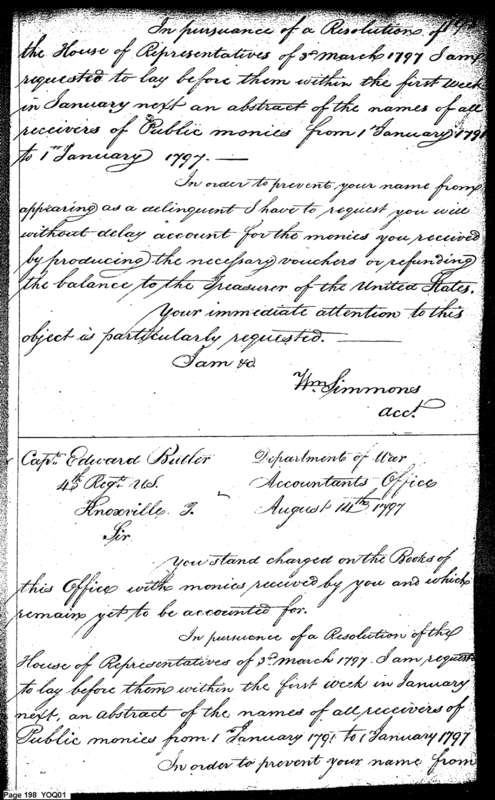 In pursuance of a Resolution of
the House of Representatives of 3d March 1797 I am
requested to lay before them within the first week
in January next an abstract of the names of all
receivers of Public monies from 1st January 1791
to 1st January 1797. —
In order to prevent your name from
appearing as a delinquent I have to request you will
without delay account for the monies you received
by producing the necessary vouchers or refunding
the balance to the Treasurer of the United States.
Your immediate attention to this
object is particularly requested. —
I am &c
Wm Simmons
Acct.
Captn. Edward Butler
4th Regt. US.
Knoxville T.
Sir
Department of War
Accountants Office
August 14th 1797
You stand charged on the Books of
this Office with monies received by you and which
remain yet to be accounted for.
In pursuance of a Resolution of the
House of Representatives of 3d March 1797. I am request
to lay before them within the first week in January
next, an abstract of the names of all receivers of
Public monies from 1st January 1791 to 1st January 1797
In order to prevent your name from
Page 198 YOQ01